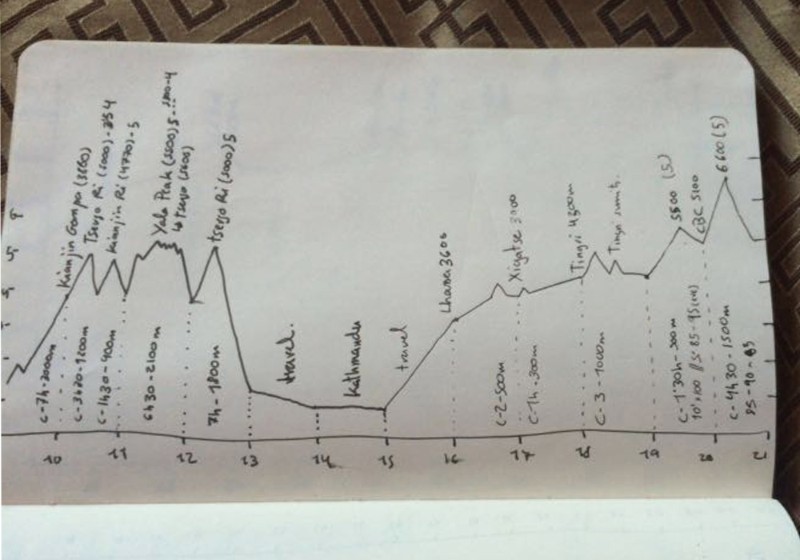 Kianjin Gompo (3860)
Tserjo Ri (5000)
Kianjin Ri (4770) - 5
Yala Peak (5500) 5
Tserjo Ri (5000) 5
Lhasa 3600
Xigatse 3900
Tingri 4300m
Tingri
5800 (5)
CBC 5100
6600 (5)
C-7h-2000m
C-3h20-1200m
C-1h30-400m
6h30-2100m
7h-1800m
travel.
Kathmandu
travel
C-2-500m
C-1h-300m
C-3-1000m
C-1'30h-300m
C-4h30-1500m
10
11
12
13
14
15
16
17
18
19
20